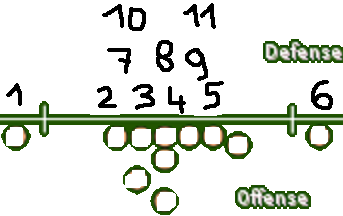 10 11
7 8 9
Defense
1 2 3 4 5 6
Offense